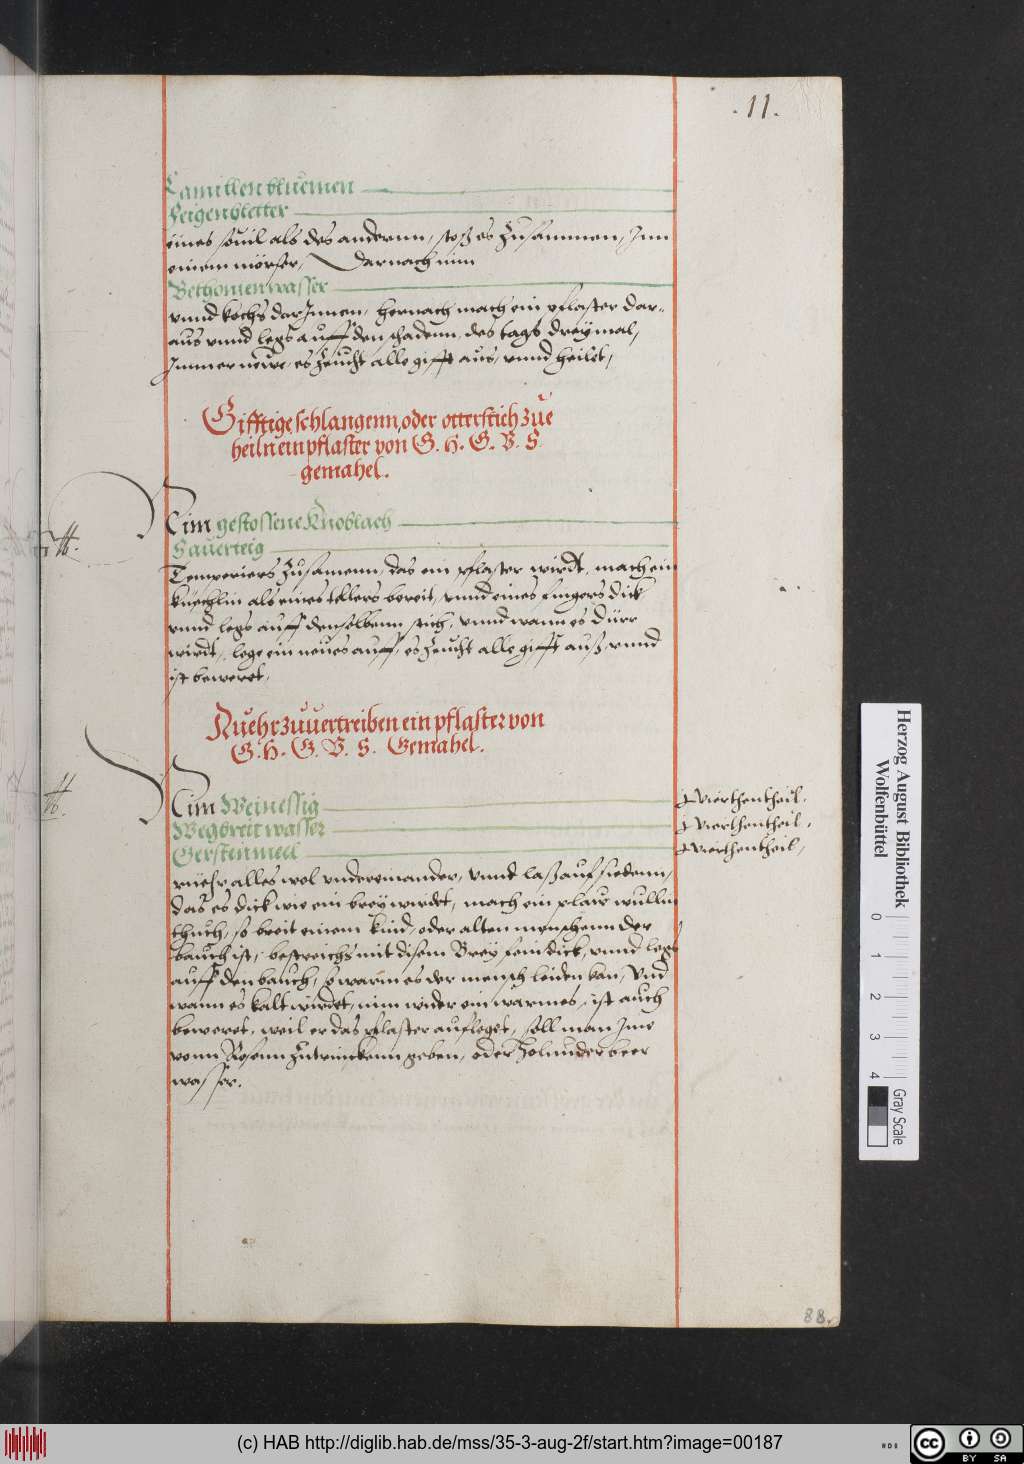 .11.
Camillen bluemen
Feigenbletter
eines souil als des andernn, stoß es Zusammen, Inn
einem mörser, Darnach nim
Bethonien wasser
vnnd kochs dar Innen, hernach mach ein pflaster dar-
aus vnnd legs auff den schadenn, des tags drey mal,
Immer newe, es Zeucht alle gifft aus, vnnd heilet,
Gifftige schlangenn, oder otterstich zue
heiln ein pflaster von G. H. G. V. S.
gemahel.
Nim gestossene Knoblach
Sauerteig
Temperiers Zusamenn, das ein pflaster wirdt, mach ein
kuechlin als eines tellers breit, vnnd eines fingers dick
vnnd legs auff denselbenn stich, vnnd wann es dürr
wirdt, lege ein neues auff, es Zeucht alle gifft auß, vnnd
ist beweret,
Ruehr zuuertreiben ein pflaster von
G. H. G. V. S. Gemahel.
Nim Weinessig vierthentheil.
Wegbreit wasser vierthentheil,
Gerstenmeel vierthentheil,
ruehr alles wol vndereinander, vnnd laß auf siedenn,
das es dick wie ein brey wirdet, mach ein plaw wullin
thuch, so breit einem kind, oder alten menschenn der
bauch ist, bestreichs mit disem Brey fein dick, vnnd legs
auff den bauch, so warm es der mensch leiden kan, Vnd
wann es kalt wirdet, nim wider ein warmes, ist auch
beweret, weil er das pflaster aufleget, soll man Ime
vonn Rosenn Zutrinckenn geben, oder Holunderbeer
wasser.
88.
Herzog August Bibliothek
Wolfenbüttel
0 1 2 3 4
Gray Scale
(c) HAB http://diglib.hab.de/mss/35-3-aug-2f/start.htm?image=00187
cc BY SA